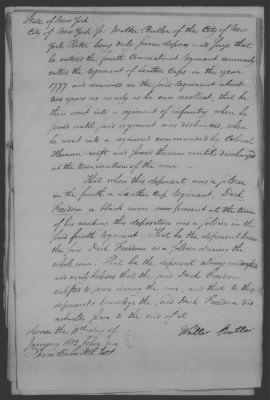 State of New York
City of New York ss. Walter Butler of the City of New
York being duly sworn deposes and says that
he entered the fourth Connecticut regiment commonly
called the regiment of Leather Caps in the year
1777 and remained in the said regiment about
two years as nearly as he can recollect, that he
then went into a regiment of infantry where he
served until said regiment was disbanded, when
he went into a regiment commanded by Colonel
Heman Swift and served therein until discharged
at the termination of the war —
That when this deponent was a soldier
in the fourth or Leather Cap regiment, Dick
Freedom a black man now present at the time
of his making this deposition was a soldier in the
said fourth regiment. That he the deponent knew
the said Dick Freedom as a soldier during the
whole war. That he the deponent
and that the said Dick Freedom
enlisted to serve during the war, and that to this
deponents knowledge the said Dick Freedom did
actually serve to the end of it
Sworn the 11th day of
January 1812 before me
Walter Butler